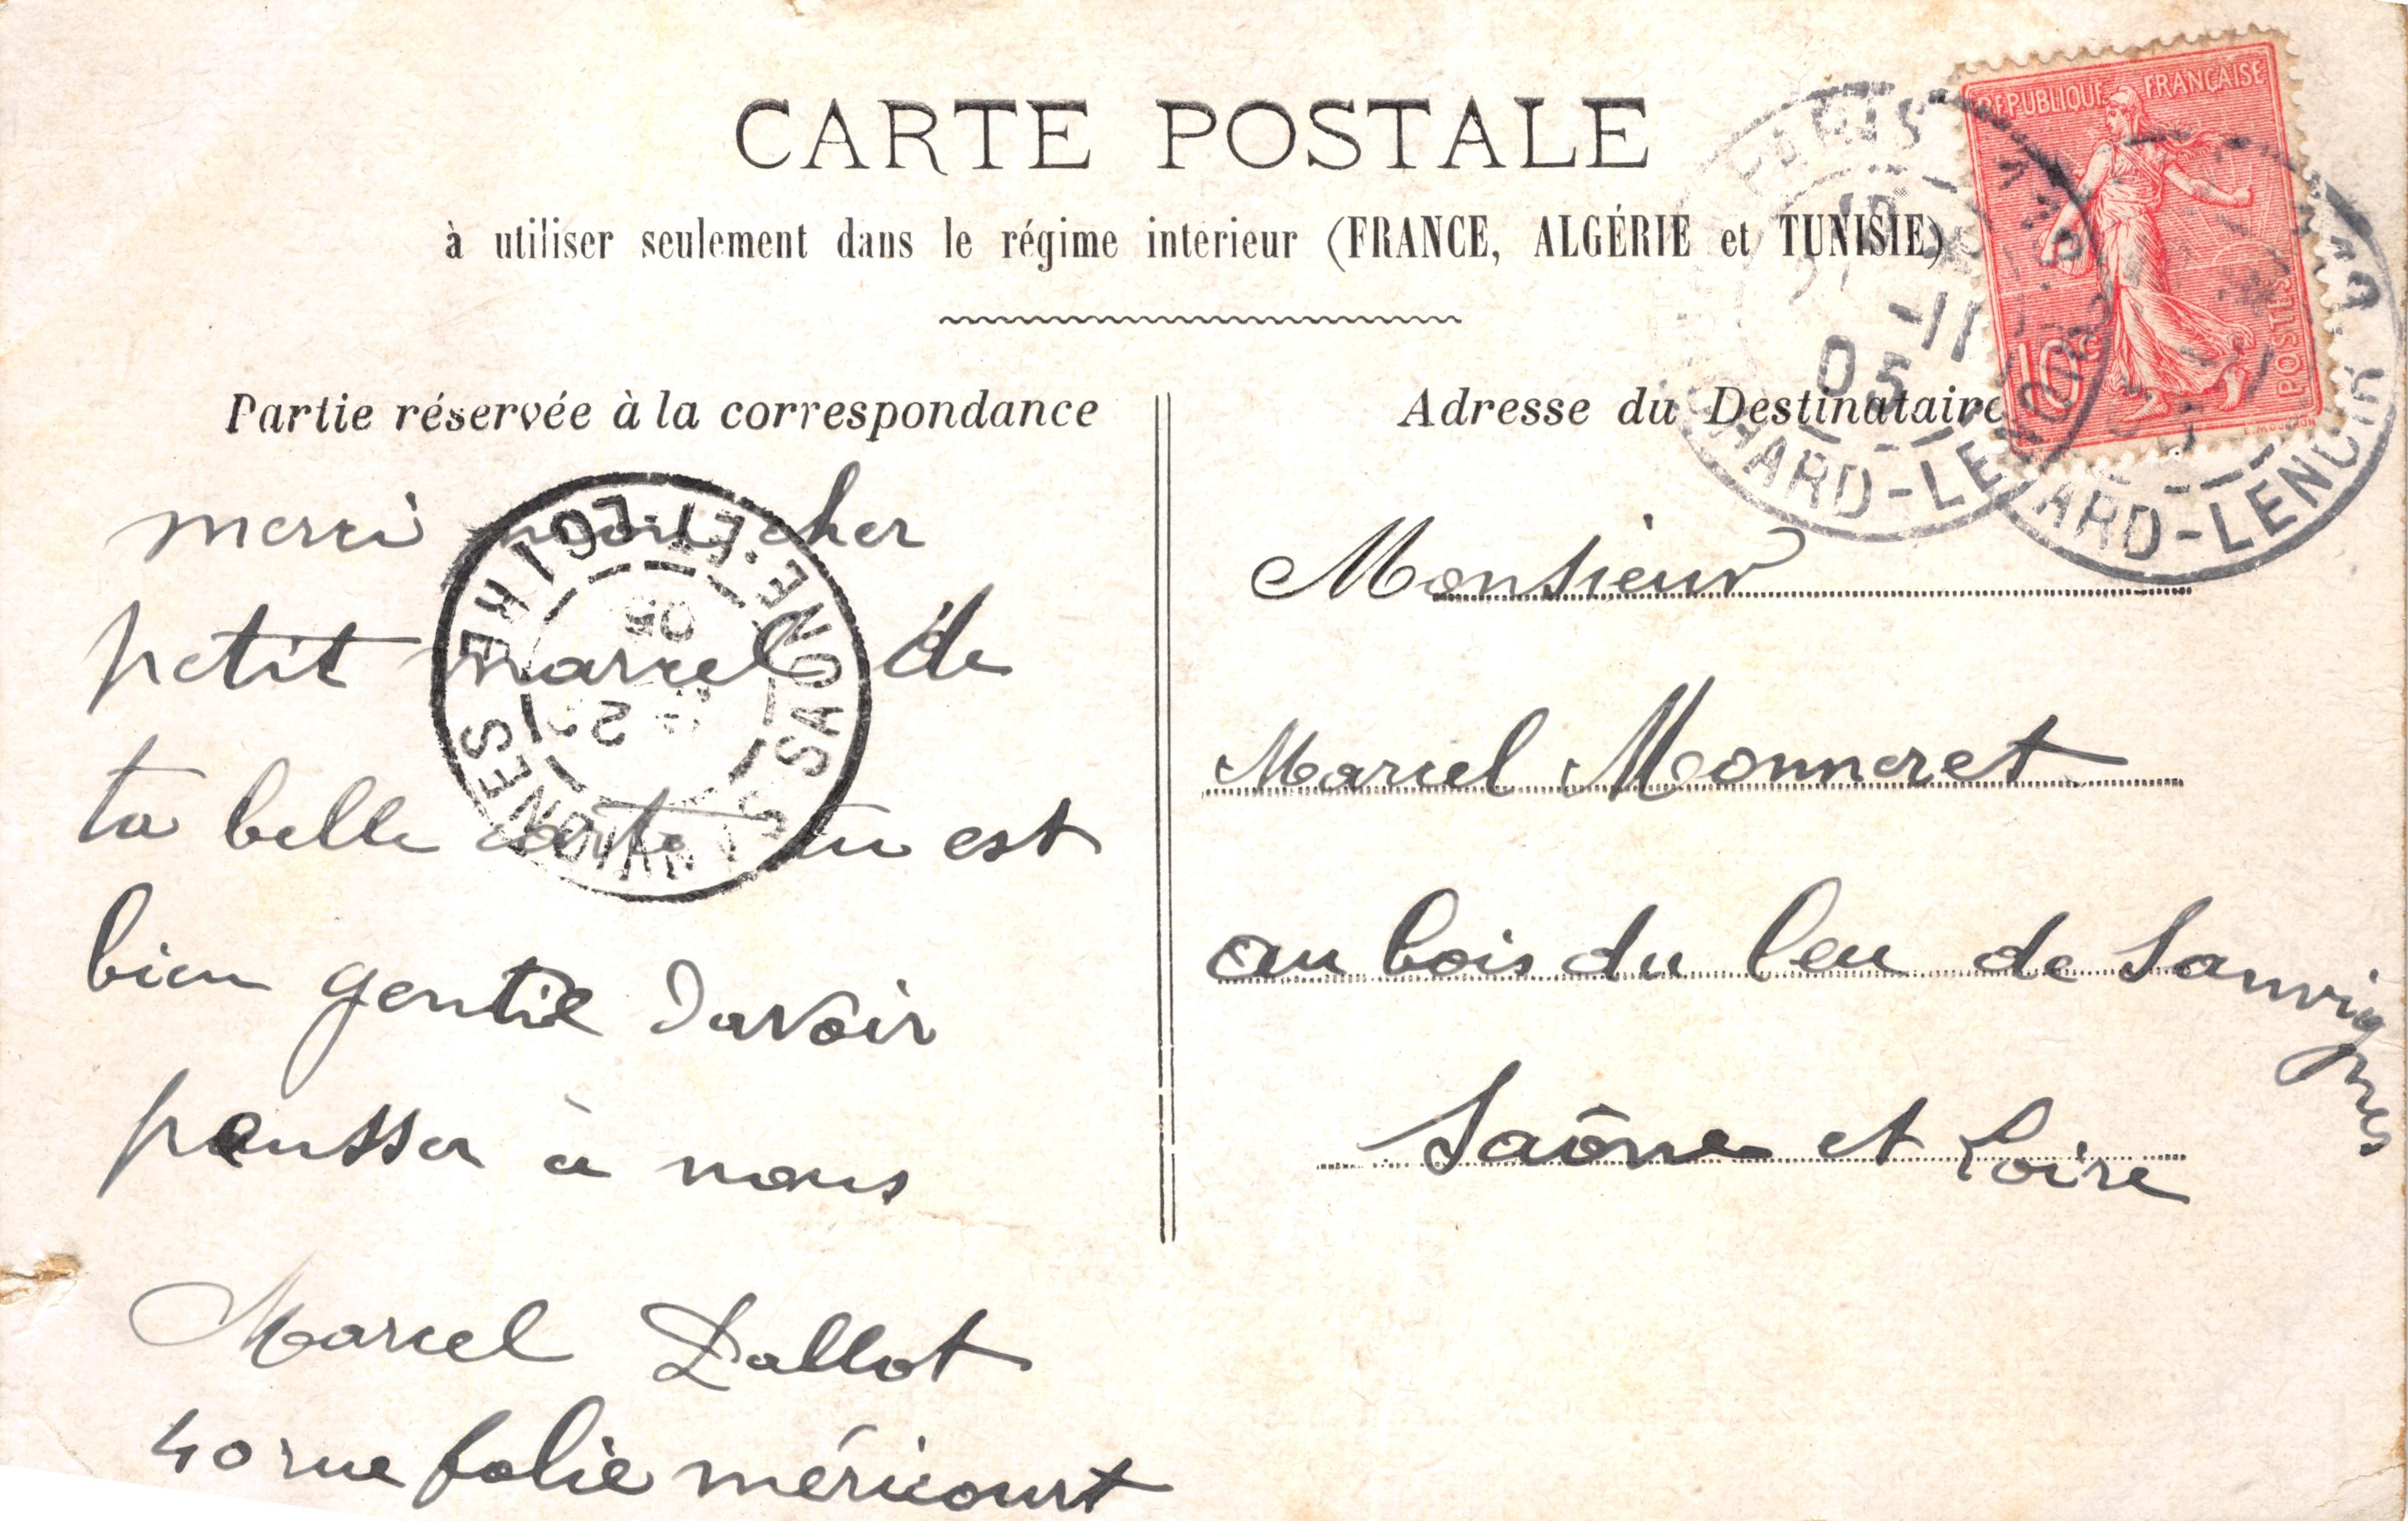 CARTE POSTALE
à utiliser seulement dans le régime intérieur (FRANCE, ALGÉRIE et TUNISIE)
REPUBLIQUE FRANÇAISE
POSTES
10c
PARIS
-11
05
HARD-LENOIR
ARD-LENOIR
Partie réservée à la correspondance
merci mon cher
petit marcel de
ta belle carte tu est
bien gentil davoir
pensser à nous
Marcel Dallot
40 rue folie méricourt
SANVIGNES
SAONE-ET-LOIRE
05
Adresse du Destinataire
Monsieur
Marcel Monneret
au bois du leu de Sanvignes
Saône et Loire